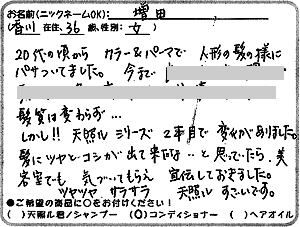 お名前(ニックネームOK): 増田
(香川 在住、36 歳、性別: 女 )
20代の頃から カラー&パーマで 人形の髪の様に
パサついてました。 今まで
髪質は変わらず…
しかし!! 天照ル シリーズ 2本目で 変化がありました。
髪にツヤとコシが出て来たな‥と思っていたら、美
容室でも 気づいてもらえ 宣伝しておきました。
ツヤツヤ サラサラ 天照ル すごいです。
●ご希望の商品に○をお付けください!
( )天照ル君ノシャンプー (○)コンディショナー ( )ヘアオイル